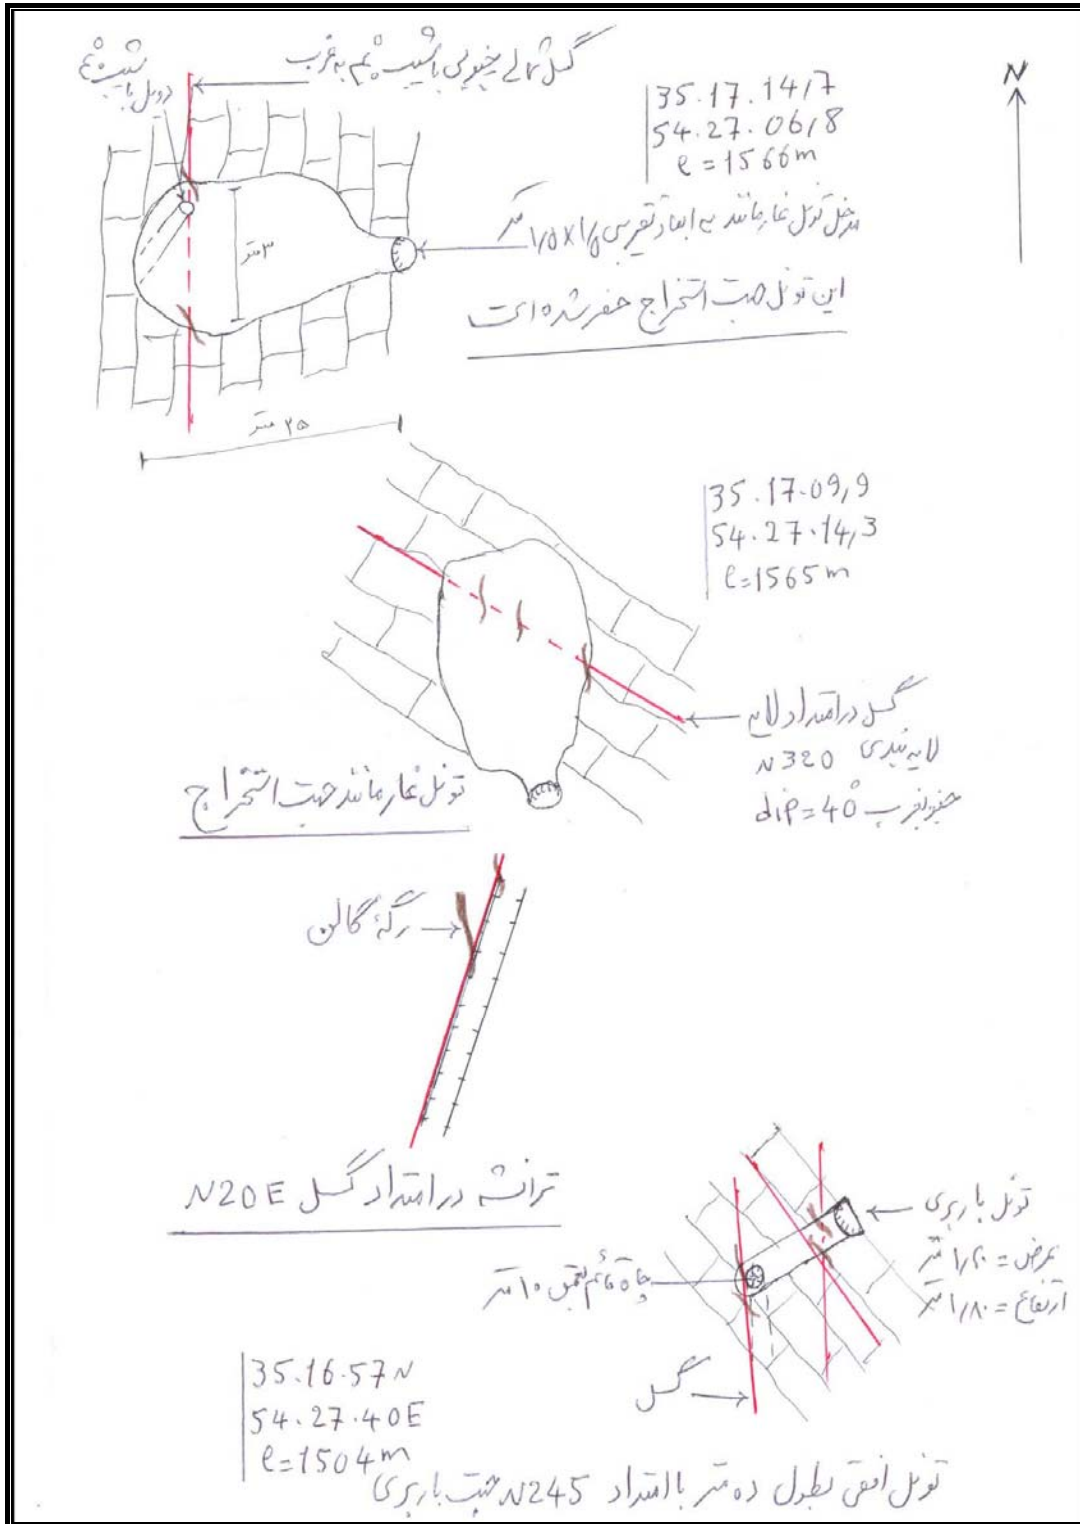 گسل شمالی جنوبی با شیب ۶۰ به غرب
دویل با شیب ۴۰
N
35.17.14/7
54.27.06/8
e = 1566m
مدخل تونل غار مانند به ابعاد تقریبی ۱/۵ X ۱/۵ متر
۳ متر
این تونل جهت استخراج حفر شده است
۲۵ متر
35.17.09,9
54.27.14,3
e=1565m
گسل در امتداد لایه
لایه بندی N320
جنوبغرب dip = 40°
تونل غار مانند جهت استخراج
رگهٔ گالن
ترانشه در امتداد گسل N20E
تونل باربری
عرض = ۱/۲۰ متر
ارتفاع = ۱/۸۰ متر
چاه قائم بعمق ۱۰ متر
گسل
35.16.57N
54.27.40E
e=1504m
تونل افقی بطول ده متر با امتداد N245 جهت باربری